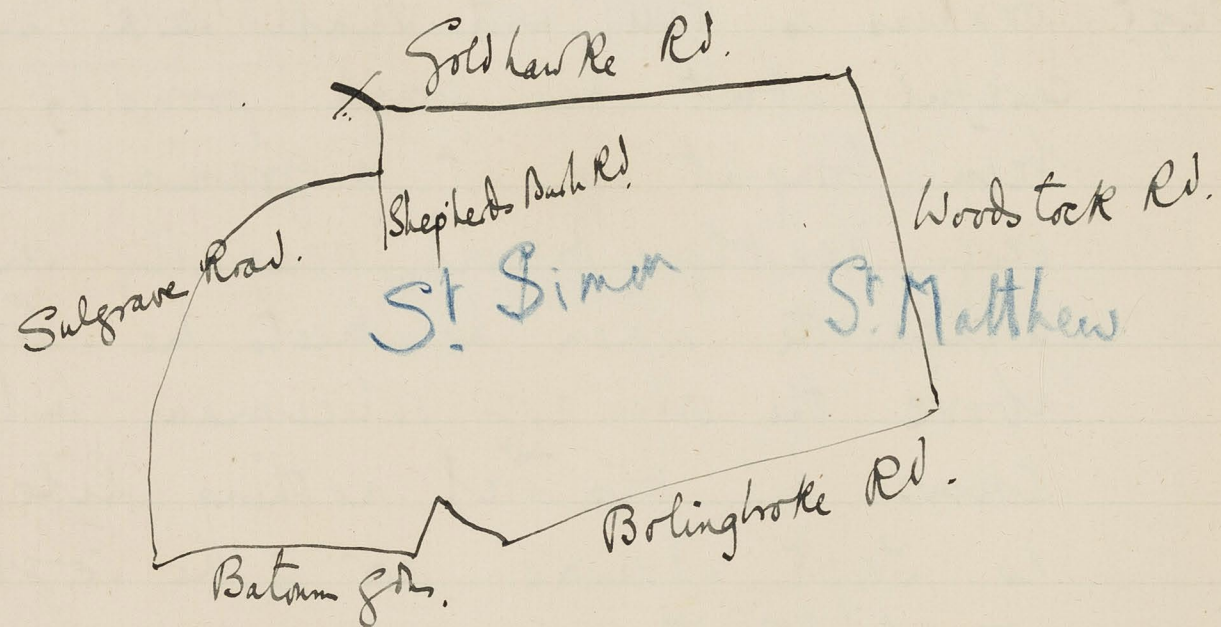 Goldhawke Rd.
Shepherds Bush Rd.
Woodstock Rd.
Sulgrave Road.
St. Simon
St. Matthew
Bolingbroke Rd.
Batoum Gdns.